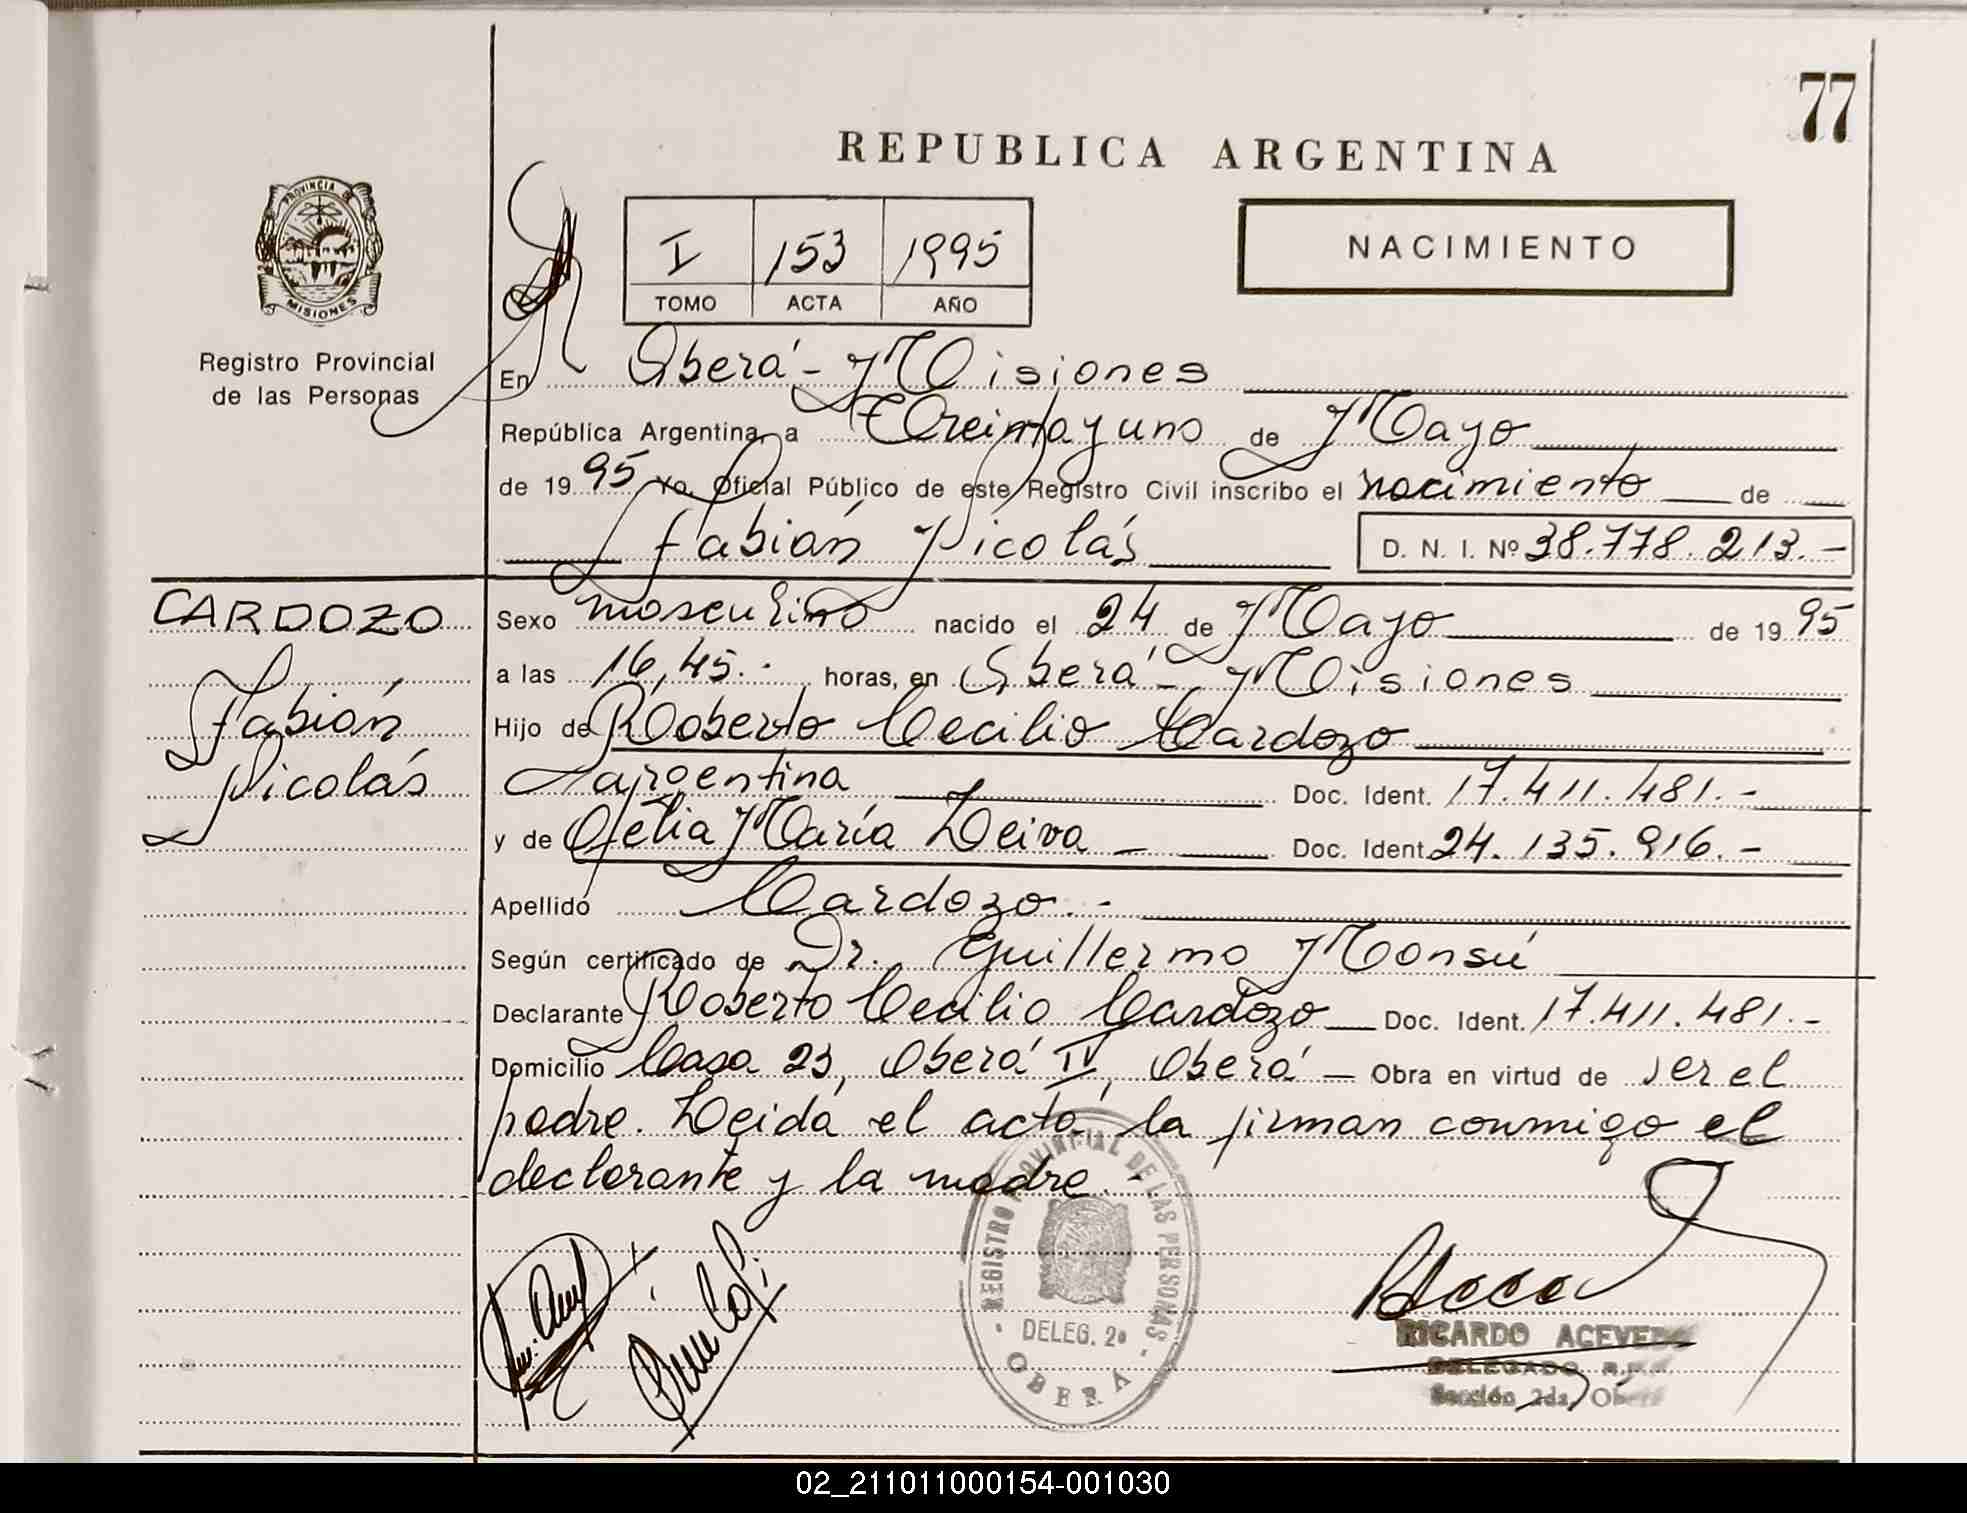 77
REPUBLICA ARGENTINA
PROVINCIA DE
MISIONES
Registro Provincial
de las Personas
I 153 1995
TOMO ACTA AÑO
NACIMIENTO
En Oberá - Misiones
República Argentina, a Treinta y uno de Mayo
de 19 95 Yo, Oficial Público de este Registro Civil inscribo el nacimiento de
Fabián Nicolás D. N. I. Nº 38.778.213.-
CARDOZO
Fabián
Nicolás
Sexo masculino nacido el 24 de Mayo de 19 95
a las 16,45. horas, en Oberá - Misiones
Hijo de Roberto Cecilio Cardozo
argentina Doc. Ident. 17.411.481.-
y de Ofelia María Leiva - Doc. Ident. 24.135.916.-
Apellido Cardozo.-
Según certificado de Dr. Guillermo Monsú
Declarante Roberto Cecilio Cardozo Doc. Ident. 17.411.481.-
Domicilio Casa 23, Oberá IV, Oberá - Obra en virtud de ser el
padre. Leida el acta la firman conmigo el
declarante y la madre.-
REGISTRO PROVINCIAL DE LAS PERSONAS
DELEG. 2ª
OBERA
RICARDO ACEVEDO
DELEGADO
Sección 2da, Oberá
02_211011000154-001030